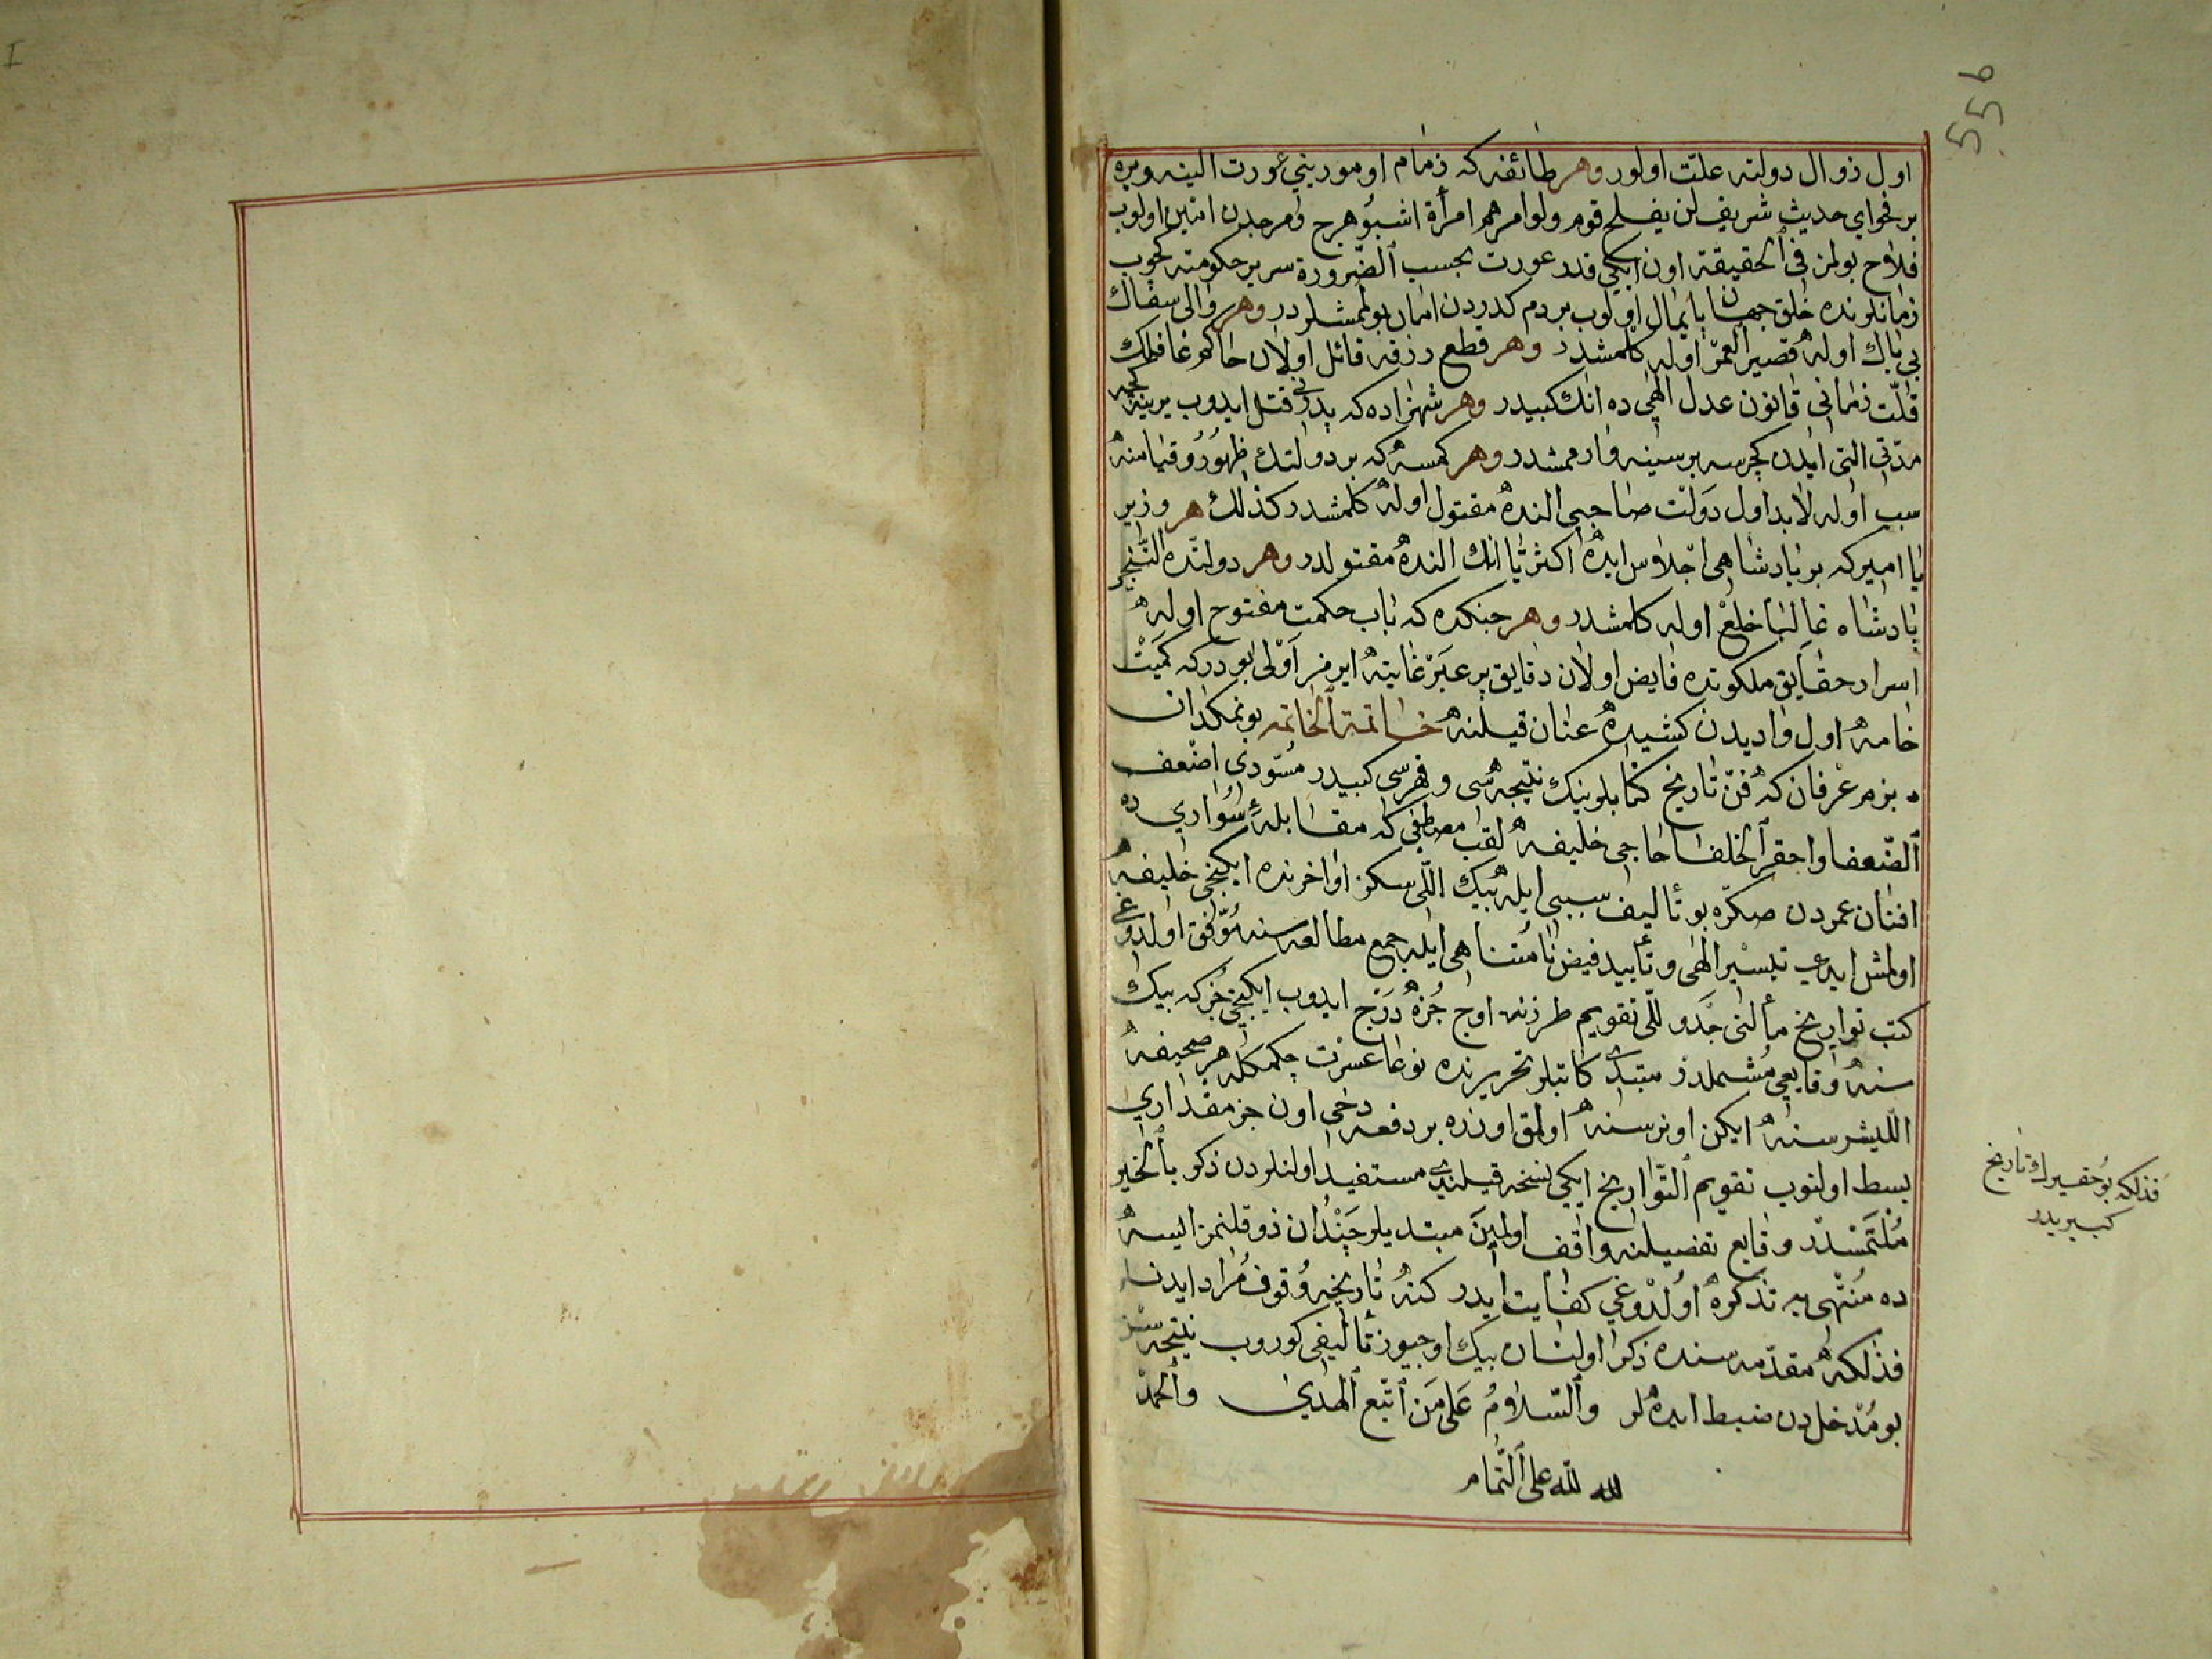 اول زوال دولته علّت اولور وهر طائفه که زمام اومورینی عورت الینه ویره
بر فحوای حدیث شریف لن یفلح قوم ولوا امرهم امرأة اشبو هرج ومرجدن امین اولوب
فلاح بولمز فی ٱلحقیقة اون ایکی قدر عورت بحسب ٱلضّرورة سریر حکومته کچوب
زمانلرنده خلق جهان پایمال اولوب بر دم کدردن امان بولمشلردر وهر والی سفاك
بی باك اوله قصیر العمر اوله کلمشدر وهر قطع رزقه قائل اولان حاکم غافلك
قلّت زمانی قانون عدل الٰهی ده انك کبیدر وهر شهزاده که پدرنی قتل ایدوب یرینه کچه
مدّتی التی ایدن کچرسه بر سینه وارممشدر وهر کمسه که بر دولتك ظهور وقیامنه
سبب اوله لابد اول دولت صاحبی النده مقتول اوله کلمشدر کذلك هر وزیر
یا امیر که بر پادشاهی اجلاس ایده اکثریا انك النده مقتولدر وهر دولتده التنجی
پادشاه غالبا خلع اوله کلمشدر وهر جنکده که باب حکمت مفتوح اوله
اسرار حقایق ملکوتده فایض اولان دقایق پر عبر غایته ایرمز اولی بودر که کمیت
خامه اول وادیدن کشیده عنان قیلنه خاتمة ٱلخاتمه بو نمکدان
بزم عرفان که فنّ تاریخ کتابلرینك نتیجه سی و فهرسی کبیدر مسوّدی اضعف
ٱلضّعفا واحقر ٱلخلفا حاجی خلیفه لقب مصطفی که مقابلهٔ سواری ده
افنان عمردن صکره بو تألیف سببی ایله بیك اللّی سکز اواخرنده ایکنجی خلیفه
اولمش ایدی تیسیر الٰهی و تأیید فیض نامتناهی ایله جمع مطالعه سنه موفّق اولدوغی
کتب تواریخ مألنی جدوللی تقویم طرزنه اوج جزؤه درج ایدوب ایکنجی جز که بیك
سنه وقایعی مشتملدر مبتدی کاتبلر تحریرنده نوعا عسرت چکمکله هر صحیفه
اللیشر سنه ایکن اونر سنه اولمق اوزره بر دفعه دخی اون جز مقداری
بسط اولنوب تقویم ٱلتّواریخ ایکی نسخه قیلندی مستفید اولنلردن ذکر بٱلخیر
ملتمسدر وقایع تفصیلنه واقف اولمین مبتدیلر چندان ذوقلنمز ایسه
ده منتهی یه تذکره اولدوغی کفایت ایدر کنه تاریخه وقوف مراد ایدن
فذلکه مقدّمه سنده ذکر اولنان بیك اوچیوز تألیفی کوروب نتیجه سنی
بو مدخلدن ضبط ایده لر وٱلسّلام علی من ٱتّبع ٱلهدی وٱلحمد
لله علی ٱلتّمام
فذلکه بو حقیرك تاریخ
کبیریدر
556
I